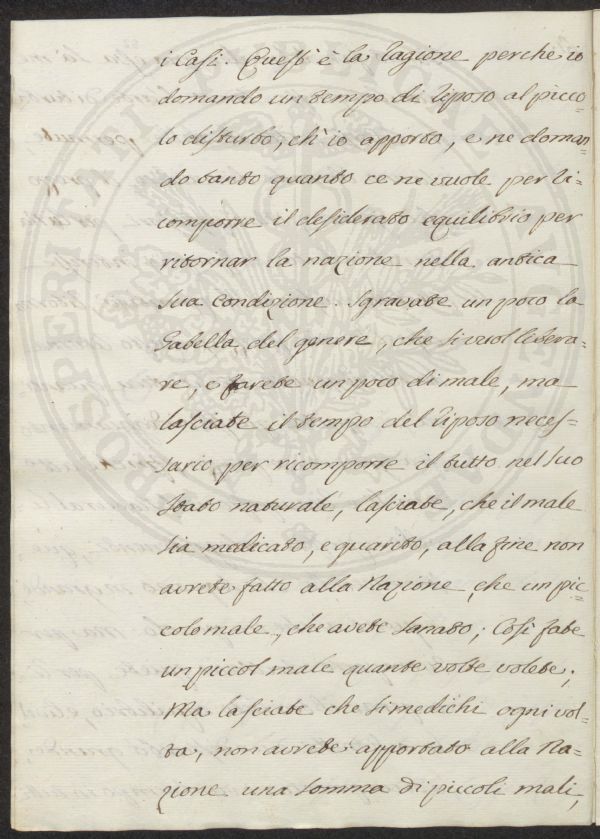 i Casi. Quest' è la ragione perche io
domando un tempo di riposo al picco=
lo disturbo, ch' io apporto, e ne doman=
do tanto quanto ce ne vuole per ri=
comporre il desiderato equilibrio per
ritornar la nazione nella antica
sua condizione. Sgravate un poco la
Gabella del genere, che si vuol libera=
re, e farete un poco di male, ma
lasciate il tempo del riposo neces=
sario per ricomporre il tutto nel suo
stato naturale, lasciate, che il male
sia medicato, e guarito, alla fine non
avrete fatto alla Nazione, che un pic=
colo male, che avete sanato; Così fate
un piccol male quante volte volete;
Ma lasciate che si medichi ogni vol=
ta, non avrete apportato alla Na=
zione una somma di piccoli mali,
PROSPERITATI PUBLICAE AUGENDAE